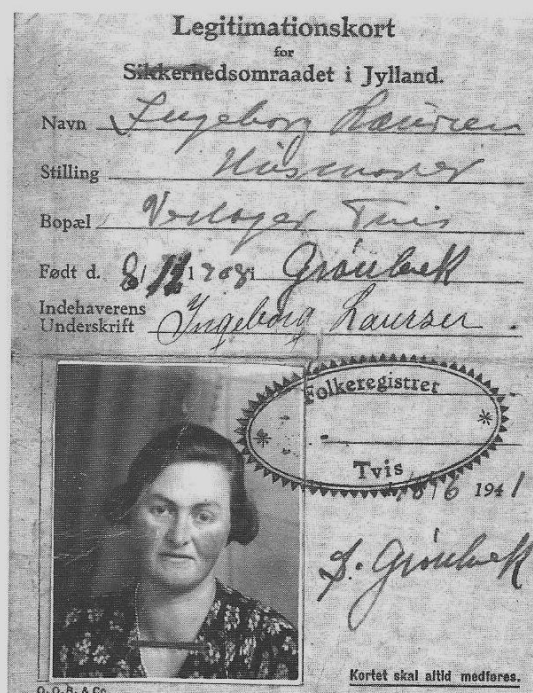 Legitimationskort
for
Sikkerhedsomraadet i Jylland.
Navn Ingeborg Laursen
Stilling Husmoder
Bopæl Tvis
Født d. 8/12 1908 i Grönbek
Indehaverens
Underskrift Ingeborg Laursen.
Folkeregistret
Tvis
6 1941
Grönbek
Kortet skal altid medføres.